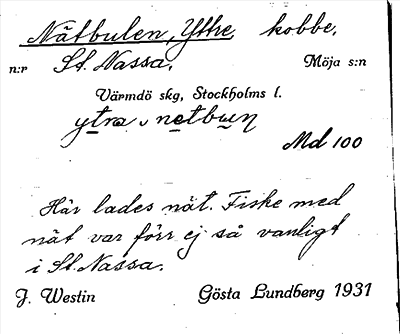 Nätbulen, Yttre, kobbe,
n:r St. Nassa, Möja s:n
Värmdö skg, Stockholms l.
ytra, netbun
Md 100
Här lades nät. Fiske med
nät var förr ej så vanligt
i St. Nassa.
J. Westin Gösta Lundberg 1931